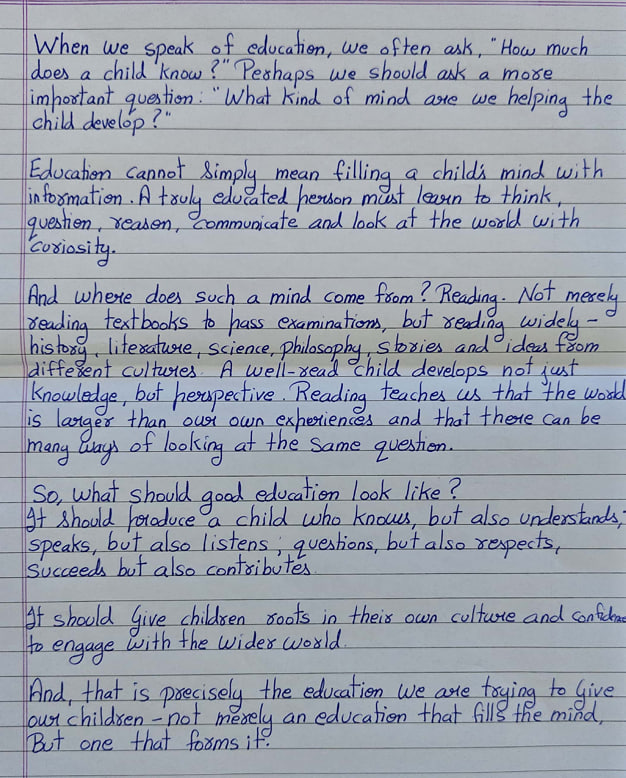 When we speak of education, we often ask, "How much
does a child know?" Perhaps we should ask a more
important question: "What kind of mind are we helping the
child develop?"
Education cannot simply mean filling a child's mind with
information. A truly educated person must learn to think,
question, reason, communicate and look at the world with
curiosity.
And where does such a mind come from? Reading. Not merely
reading textbooks to pass examinations, but reading widely -
history, literature, science, philosophy, stories and ideas from
different cultures. A well-read child develops not just
knowledge, but perspective. Reading teaches us that the world
is larger than our own experiences and that there can be
many ways of looking at the same question.
So, what should good education look like?
It should produce a child who knows, but also understands,
speaks, but also listens; questions, but also respects,
Succeeds but also contributes.
It should give children roots in their own culture and confidence
to engage with the wider world.
And, that is precisely the education we are trying to give
our children - not merely an education that fills the mind,
But one that forms it.